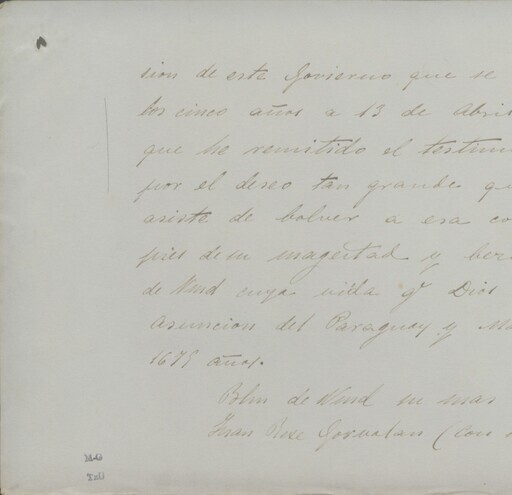 sion de este Govierno que se
los cinco años a 13 de Abri
que he remitido el testim
por el deseo tan grande qu
asiste de bolver a esa co
pies de su magestad y ver
de Vmd cuya vida g^e Dios
Asuncion del Paraguay y Ma
1675 años.
Bslm de Vmd su mas
Juan Rexe Gorvalan (con